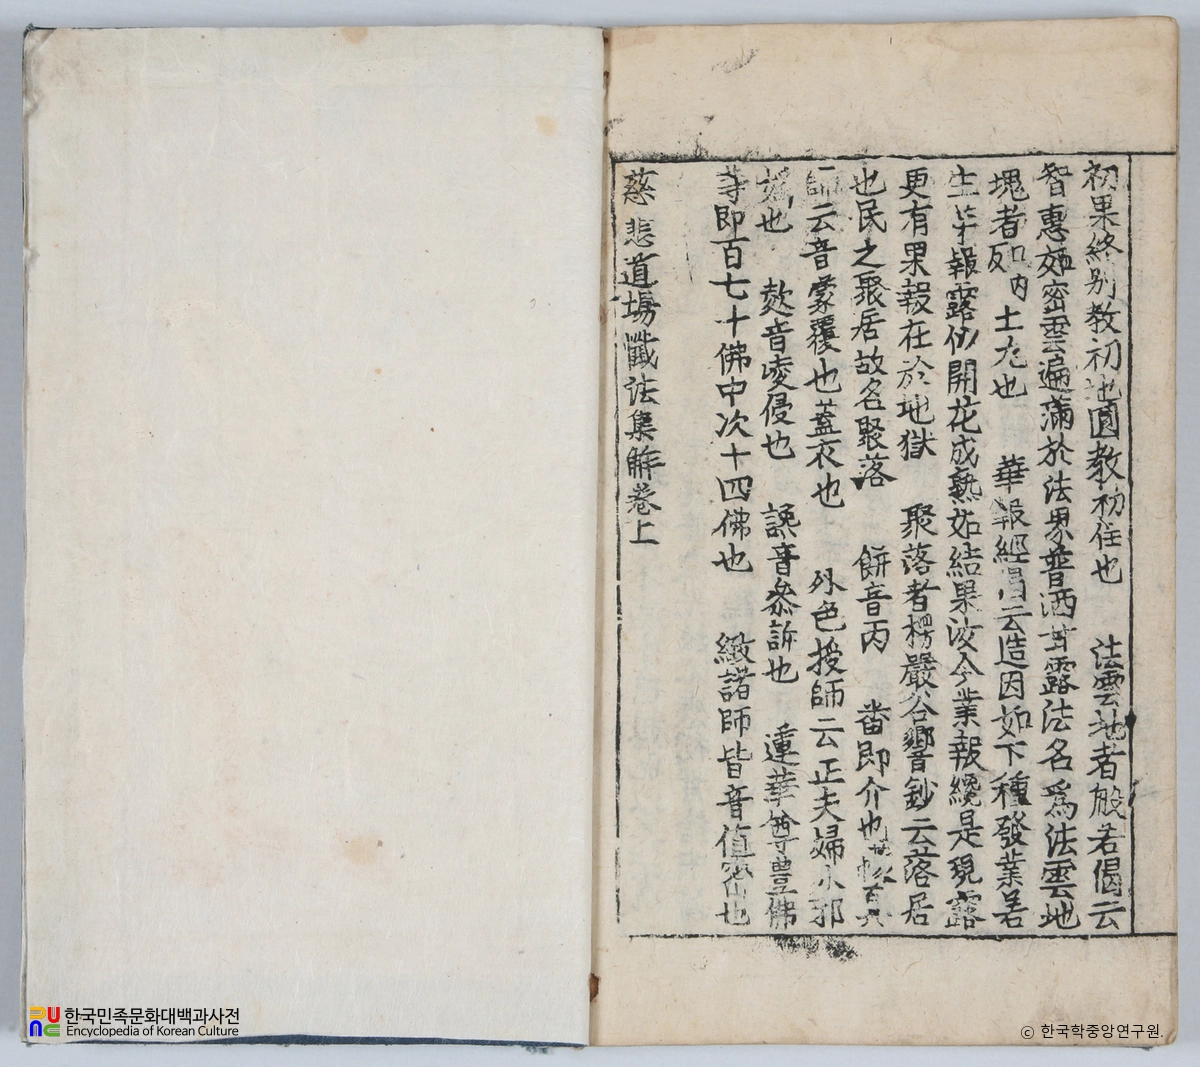 初果終別教初地圓教初住也 法雲地者般若偈云
智惠如密雲遍滿於法界普洒甘露法名爲法雲地
塊者 土尢也 華報經音云造因如下種發業若
生芽報露仍開花成熟如結果汝今業報纔是現露
更有果報在於地獄 聚落者楞嚴谷響鈔云落居
也民之聚居故名聚落 餠音丙 畨即介也
師云音蒙覆也蓋衣也 外色授師云正夫婦亦邪
婬也 欻音 侵也 讒音參訴也 蓮華尊豊佛
等即百七十佛中次十四佛也 緻諸師皆音値密也
慈悲道場懺法集解卷上
한국민족문화대백과사전
Encyclopedia of Korean Culture
ⓒ 한국학중앙연구원.